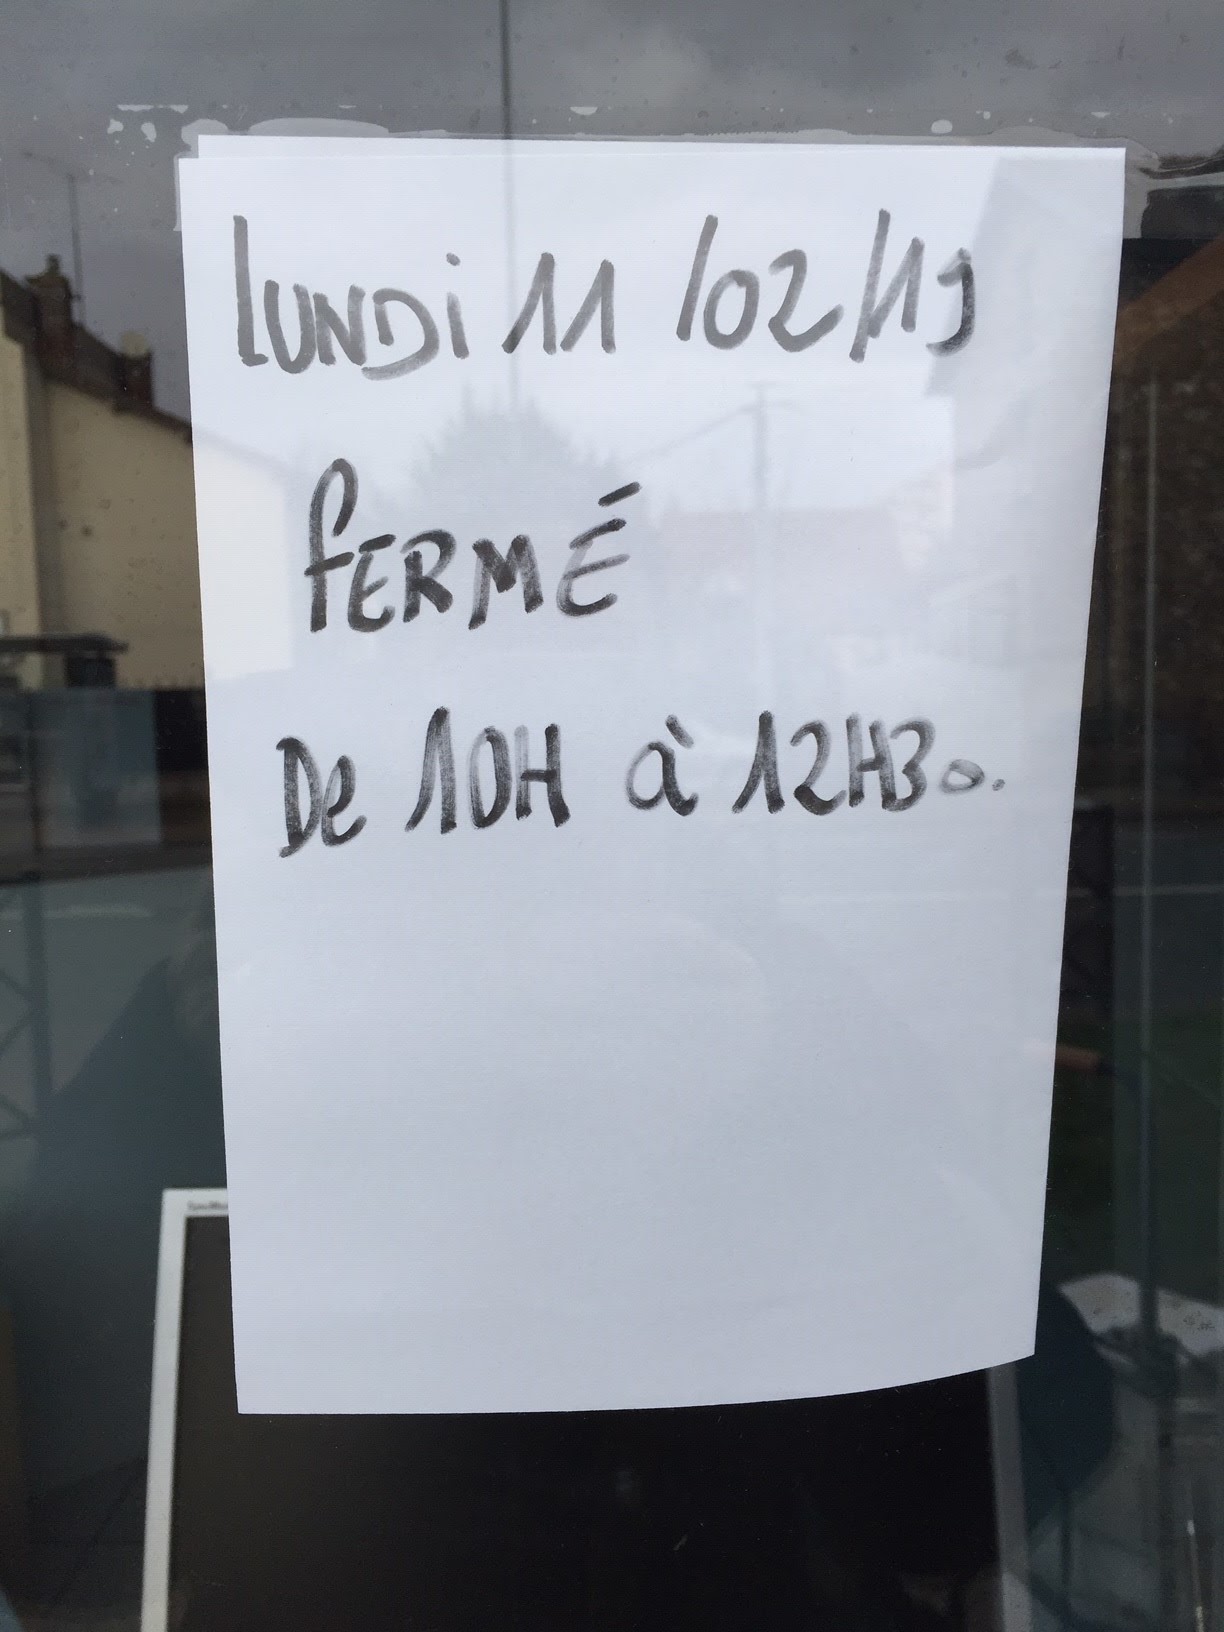 LUNDi 11 /02/19
fERMÉ
De 10H à 12H30.